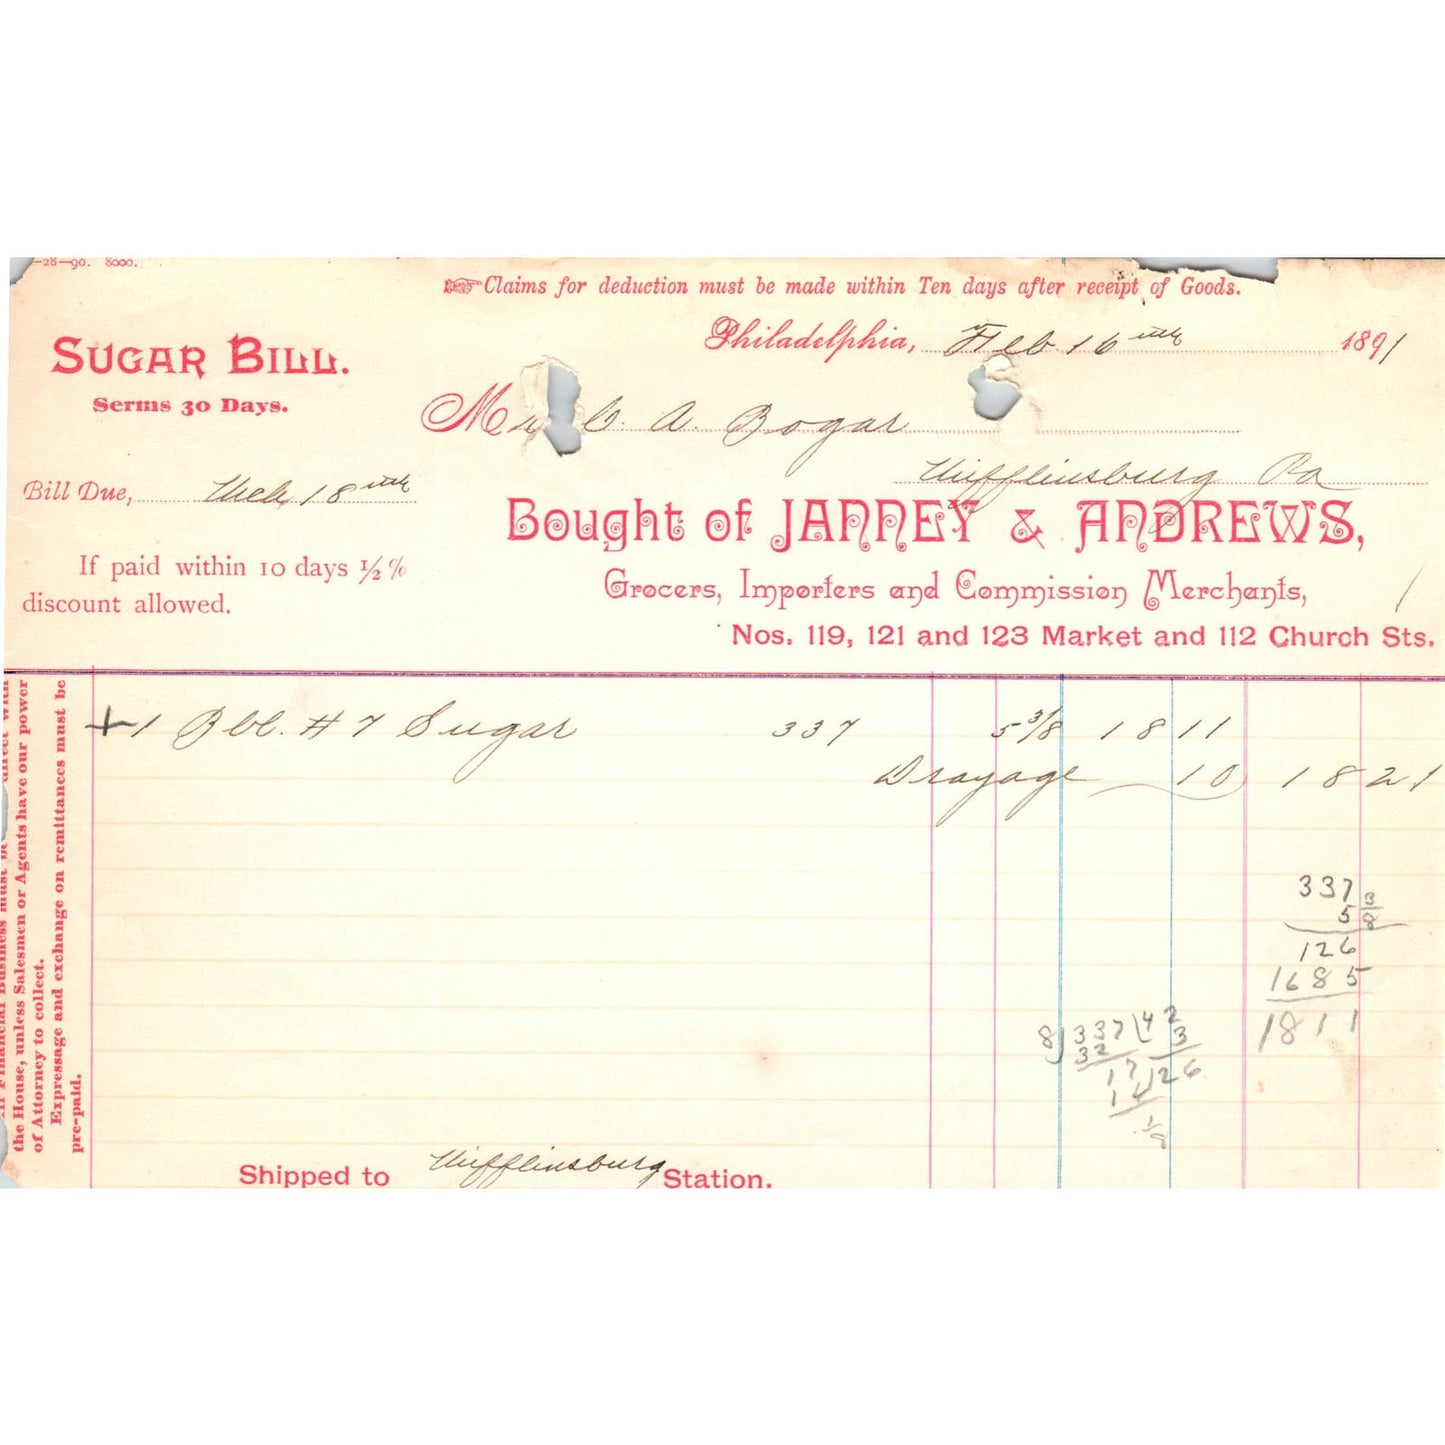 —28—90. 8000.
Claims for deduction must be made within Ten days after receipt of Goods.
Philadelphia, Feb 16 1891
SUGAR BILL.
Serms 30 Days.
Mr C. A. Bogar
Mifflinsburg Pa
Bill Due, Mch 18
Bought of JANNEY & ANDREWS,
If paid within 10 days 1/2 %
discount allowed.
Grocers, Importers and Commission Merchants,
Nos. 119, 121 and 123 Market and 112 Church Sts.
the House, unless Salesmen or Agents have our power
of Attorney to collect.
Expressage and exchange on remittances must be
pre-paid.
+ 1 Bbl. # 7 Sugar 337 5 3/8 18 11
Drayage 10 18 21
337
5 3/8
126
1685
1811
8) 337 (42
32 3
17 126
1
Shipped to Mifflinsburg Station.